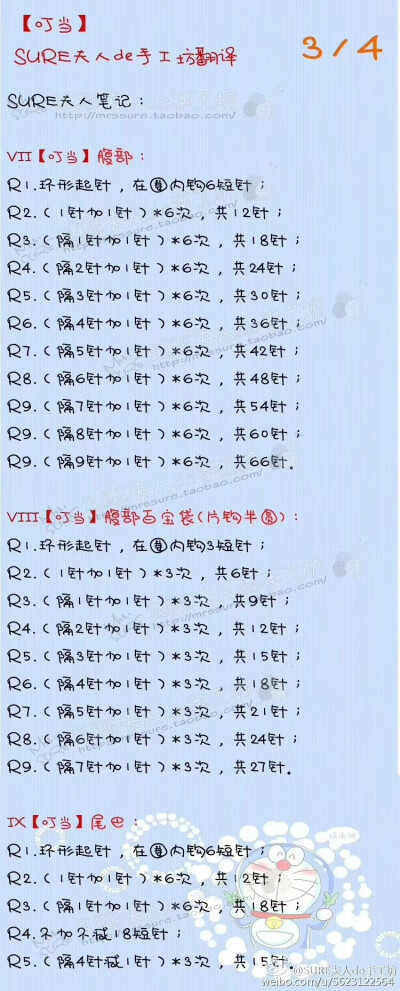 【叮当】
3/4
SURE夫人de手工坊翻译
SURE夫人笔记：
http://mrssure.taobao.com/
VII【叮当】腹部：
R1.环形起针，在圈内钩6短针；
R2.（1针加1针）*6次，共12针；
R3.（隔1针加1针）*6次，共18针；
R4.（隔2针加1针）*6次，共24针；
R5.（隔3针加1针）*6次，共30针；
R6.（隔4针加1针）*6次，共36针；
R7.（隔5针加1针）*6次，共42针；
http://mrssure.taobao.com/
R8.（隔6针加1针）*6次，共48针；
R9.（隔7针加1针）*6次，共54针；
R9.（隔8针加1针）*6次，共60针；
R9.（隔9针加1针）*6次，共66针.
http://mrssure.taobao.com/
VIII【叮当】腹部百宝袋(片钩半圆)：
R1.环形起针，在圈内钩3短针；
R2.（1针加1针）*3次，共6针；
http://mrssure.taobao.com/
R3.（隔1针加1针）*3次，共9针；
R4.（隔2针加1针）*3次，共12针；
R5.（隔3针加1针）*3次，共15针；
R6.（隔4针加1针）*3次，共18针；
R7.（隔5针加1针）*3次，共21针；
http://mrssure.taobao.com/
R8.（隔6针加1针）*3次，共24针；
R9.（隔7针加1针）*3次，共27针.
IX【叮当】尾巴：
R1.环形起针，在圈内钩6短针；
R2.（1针加1针）*6次，共12针；
R3.（隔1针加1针）*6次，共18针；
R4.不加不减18短针；
R5.（隔4针减1针）*3次，共15针.
@SURE夫人de手工坊
weibo.com/u/5623122564